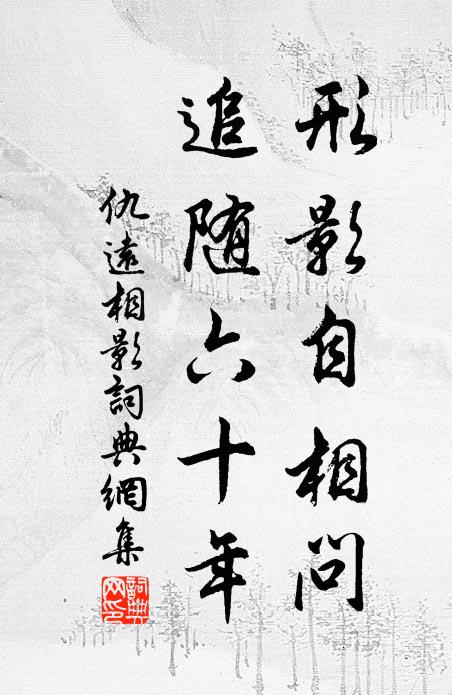 形影自相问
追随六十年
仇遠相影詞典網集
詞典網印